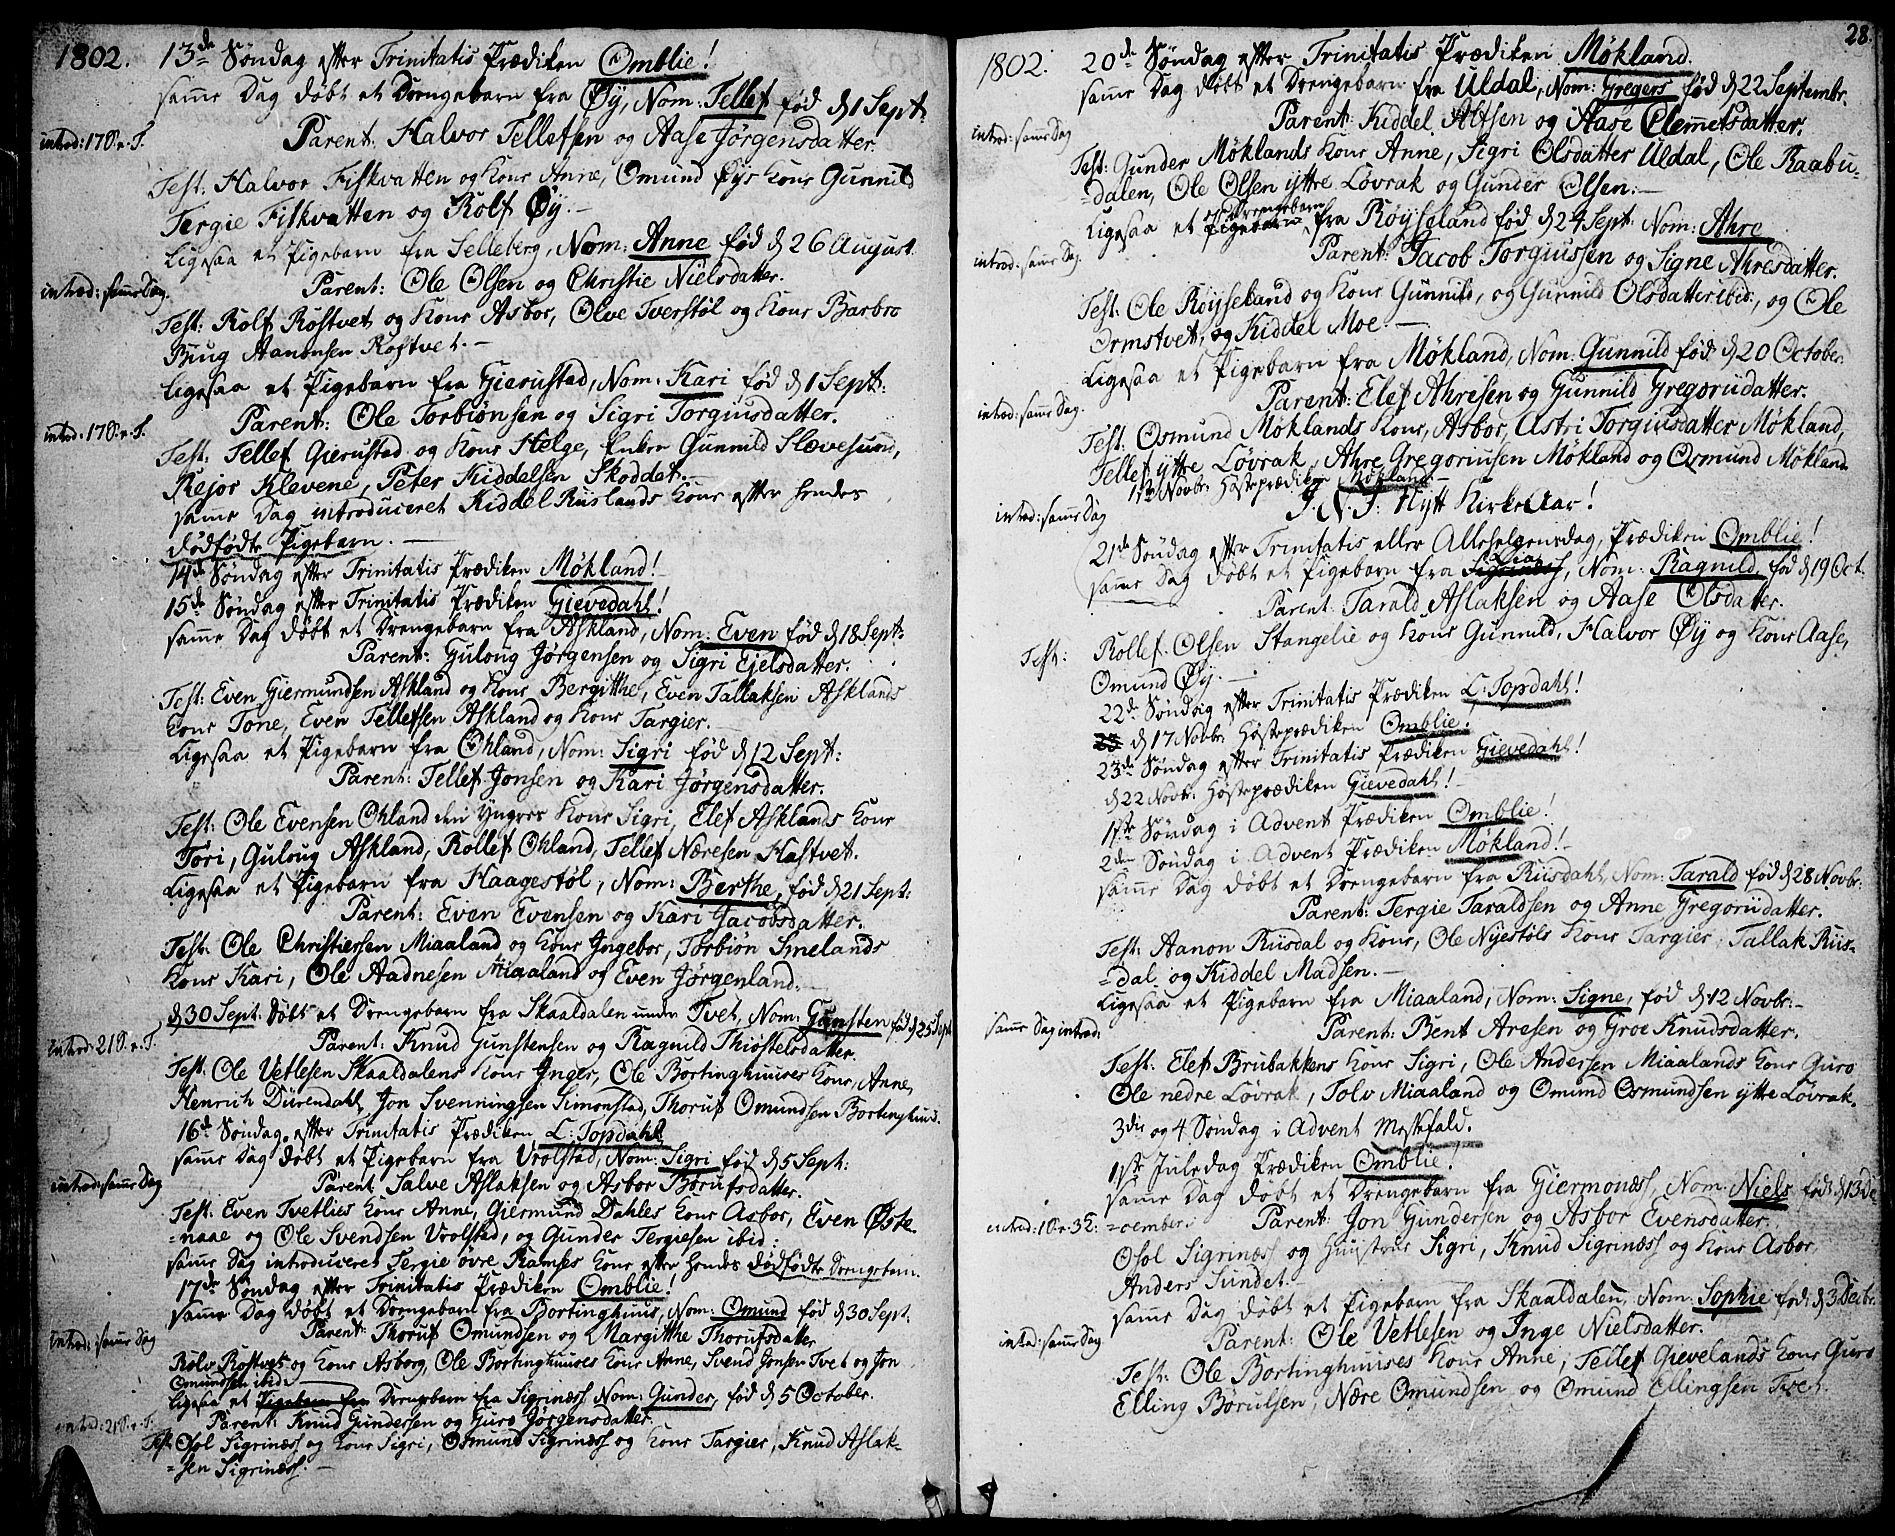 1802. 13de Søndag efter Trinitatis Prædiken Omblie!
samme Dag døbt et Drengebarn fra Øy, Nom: Tellef fød d 1 Sept:
introd: 17 S. e. T.
Parent: Halvor Tellefsen og Aase Jørgensdatter.
Test: Halvor Fiskvatten og Kone Anne, Omund Øys Kone Gunnild
Tergie Fiskvatten og Rolf Øy.-
Ligesaa et Pigebarn fra Selleberg, Nom: Anne fød d 26 August
introd: samme Dag.
Parent: Ole Olsen og Christie Nielsdatter.
Test: Rolf Rostvet og Kone Asbor, Olve Tverstøl og Kone Barbro
Biug Aanonsen Rostvet.-
Ligesaa et Pigebarn fra Gierustad, Nom: Kari fød d 1 Sept:
introd: 17 S. e. T.
Parent: Ole Torbiønsen og Sigri Torguusdatter.
Test: Tellef Gierustad og Kone Helge, Enken Gunnild Slævesund,
Rejor Klevene, Peter Kiddelsen Skoddet.-
samme Dag introduceret Kiddel Ruslands Kone efter hendes
dødfødte Pigebarn.-
14de Søndag efter Trinitatis Prædiken Møkland!
15de Søndag efter Trinitatis Prædiken Gievedahl!
samme Dag døbt et Drengebarn fra Askland, Nom: Even fød d 18 Sept:
Parent: Guloug Jørgensen og Sigri Ejelsdatter.
Test: Even Giermundsen Askland og Kone Bergitthe, Even Tallaksen Asklands
Kone Tone, Even Tellefsen Askland og Kone Targier.
Ligesaa et Pigebarn fra Ohland, Nom: Sigri fød d 12 Sept:
Parent: Tellef Jonsen og Kari Jørgensdatter.
Test: Ole Evensen Ohland den Yngres Kone Sigri, Elef Asklands Kone
Tori, Guloug Askland, Rollef Ohland, Tellef Næresen Hastvet.
Ligesaa et Pigebarn fra Haagestøl, Nom: Berthe, fød d 21 Sept:
Parent: Even Evensen og Kari Jacobsdatter.
Test: Ole Christiersen Miaaland og Kone Ingebor, Torbiøn Smelands
Kone Kari, Ole Aadnesen Miaaland of Even Jørgenland.
d 30 Sept: døbt et Drengebarn fra Skaaldalen under Tvet, Nom: Gunsten fød d 25 Sept
introd: 21 S. e. T.
Parent: Knud Gunstensen og Ragnild Thiostelsdatter.
Test: Ole Vetlesen Skaaldalens Kone Inger, Ole Bortinghuuses Kone, Anne,
Henrich Dürendahl, Jon Svenningsen Simonstad, Thoruf Omundsen Bortinghuus.
16de Søndag efter Trinitatis Prædiken L: Topdahl
samme Dag døbt et Pigebarn fra Vrolstad, Nom: Sigri fød d 5 Sept:
introd: samme Dag
Parent Salve Aslaksen og Asbor Børufsdatter.
Test: Even Tvetlies Kone Anne, Giermund Dahles Kone Asbor, Even Øste
=naae og Ole Svendsen Vrolstad, og Gunder Tergiesen ibid:
samme Dag introduceret Tergie øvre Ramses Kone efter hendes dødfødte Drengebarn.
17de Søndag efter Trinitatis Prædiken Omblie!
samme Dag døbt et Drengebarn fra Bortinghuus, Nom: Omund fød d 30 Sept:
introd: samme Dag
Parent: Thoruf Omundsen og Margitthe Thorufsdatter
Rolv Rostvet og Kone Asborg, Ole Bortinghuuses Kone Anne, Svend Jonsen Tvet og Jon
Omundsen ibid:
Ligesaa et Pigebarn fra Drengebarn fra Sigrinæss Nom: Gunder, fød d 5 October.
introd: 21 S. e. T.
Parent: Knud Gundersen og Guro Jørgensdatter.
Test: Osol Sigrinæss og Kone Sigri, Osmund Sigrinæss og Kone Targier, Knud Aslak=
=sen Sigrinæss.-
28.
1802. 20de Søndag efter Trinitatis Prædiken Møkland.
samme Dag døbt et Drengebarn fra Uldal, Nom: Gregers fød d 22 Septembr.
introd: samme Dag
Parent: Kiddel Alfsen og Aase Clemetsdatter.
Test: Gunder Møklands Kone Anne, Sigri Olsdatter Uldal, Ole Raabu=
=dalen, Ole Olsen yttre Løvrak og Gunder Olsen.-
Ligesaa et Pigebarn Drengebarn fra Røyseland fød d 24 Sept: Nom: Ahre
introd: samme Dag.
Parent: Jacob Torguussen og Signe Ahresdatter.
Test: Ole Røyseland og Kone Gunnild, og Gunnild Olsdatter ibid:, og Ole
Ormstvet, og Kiddel Moe.-
Ligesaa et Pigebarn fra Møkland, Nom: Gunnild fød d 20 October.
introd: samme Dag.
Parent: Elef Ahresen og Gunnild Gregoriidatter.
Test: Osmund Møklands Kone, Asbor, Astri Torguusdatter Møkland,
Tellef yttre Løvrak, Ahre Gregoriusen Møkland og Osmund Møkland.
1ste Novbr: Høsteprædiken Møkland.-
introd: samme Dag
J. N. J: Nytt Kirke Aar!
21de Søndag efter Trinitatis eller Allehelgensdag, Prædiken Omblie!
samme Dag døbt et Pigebarn fra Sigrinæss, Nom: Ragnild fød d 19 Oct.
Parent: Tarald Aslaksen og Aase Olsdatter.
Test: Rollef Olsen Stangelie og Kone Gunnild, Halvor Øy og Kone Aase,
Omund Øy.-
22de Søndag efter Trinitatis Prædiken L: Topdahl!
d 17 Novbr. Høsteprædiken Omblie!
23de Søndag efter Trinitatis Prædiken Gievedahl!
d 22 Novbr: Høsteprædiken Gievedahl!-
1ste Søndag i Advent Prædiken Omblie!
2den Søndag i Advent Prædiken Møkland!-
samme Dag døbt et Drengebarn fra Riisdahl, Nom: Tarald fød d 28 Novbr:
Parent: Tergie Taraldsen og Anne Gregoriidatter.
Test: Aanon Riisdal og Kone, Ole Nyestøls Kone Targier, Tallak Riis=
=dal og Kiddel Madsen.-
Ligesaa et Pigebarn fra Miaaland, Nom: Signe, fød d 12 Novbr:-
samme Dag introd:
Parent: Bent Aresen og Groe Knudsdatter.
Test: Elef Brubakkens Kone Sigri, Ole Andersen Miaalands Kone Guro
Ole nedre Løvrak, Tolv Miaaland og Omund Osmundsen yttre Løvrak.
3die og 4 Søndag i Advent Messefald.
1ste Juledag Prædiken Omblie!
samme Dag døbt et Drengebarn fra Giermonæss, Nom: Niels fød d 13 De
=cember.
Parent: Jon Gundersen og Asbor Evensdatter.
Osol Sigrinæss og Huustrue Sigri, Knud Sigrinæss og Kone Asbor,
Anders Sundet.-
samme Dag døbt et Pigebarn fra Skaaldalen, Nom: Sophie fød: d 3 Decbr.
introd: samme Dag
Parent: Ole Vetlesen og Inge Nielsdatter.
Test: Ole Bortinghuuses Kone Anne, Tellef Gievelands Kone Guro
Elling Børulsen, Nære Omundsen og Omund Ellingsen Tvet.